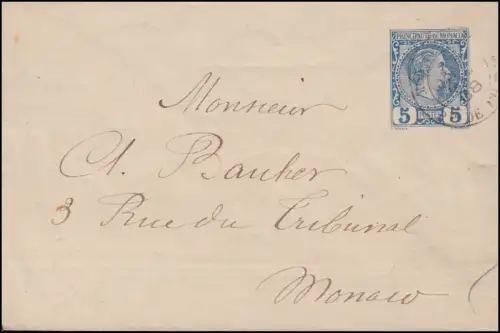 PRINCIPAUTÉ DE MONACO
5 5
Monsieur
A. Bauher
3 Rue du Tribunal
Monaco